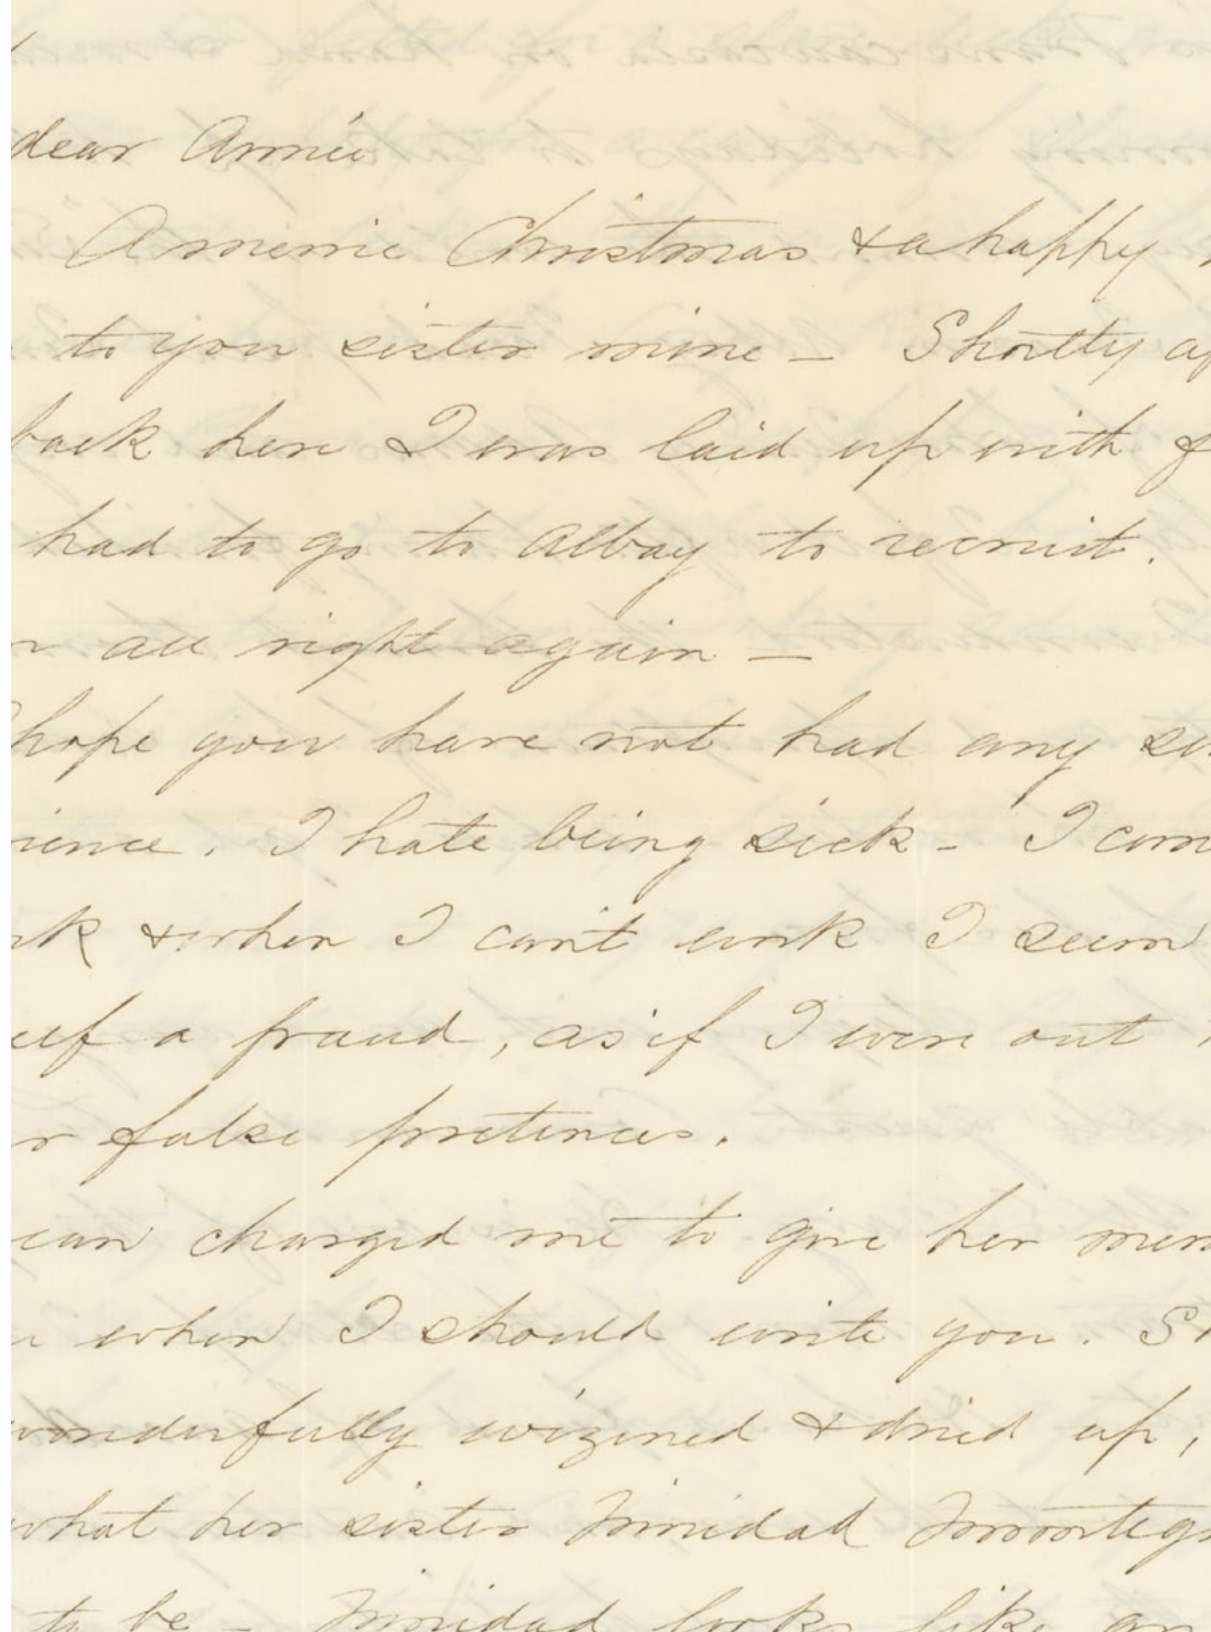 dear Annie
A merrie Christmas & a happy
to you sister mine – Shortly
back here I was laid up with
had to go to Albay to recruit.
all right again –
hope you have not had any
ience. I hate being sick – I
& when I can't work I seem
a fraud, as if I were out
false pretences.
charged me to give her
when I should write you.
wonderfully wizened & dried up,
what her sister Trinidad
to be – Trinidad looks like an